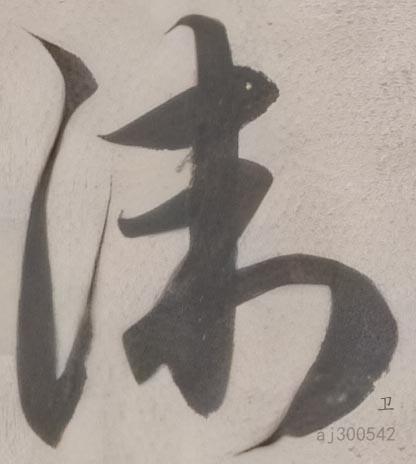 衛
卫
aj300542